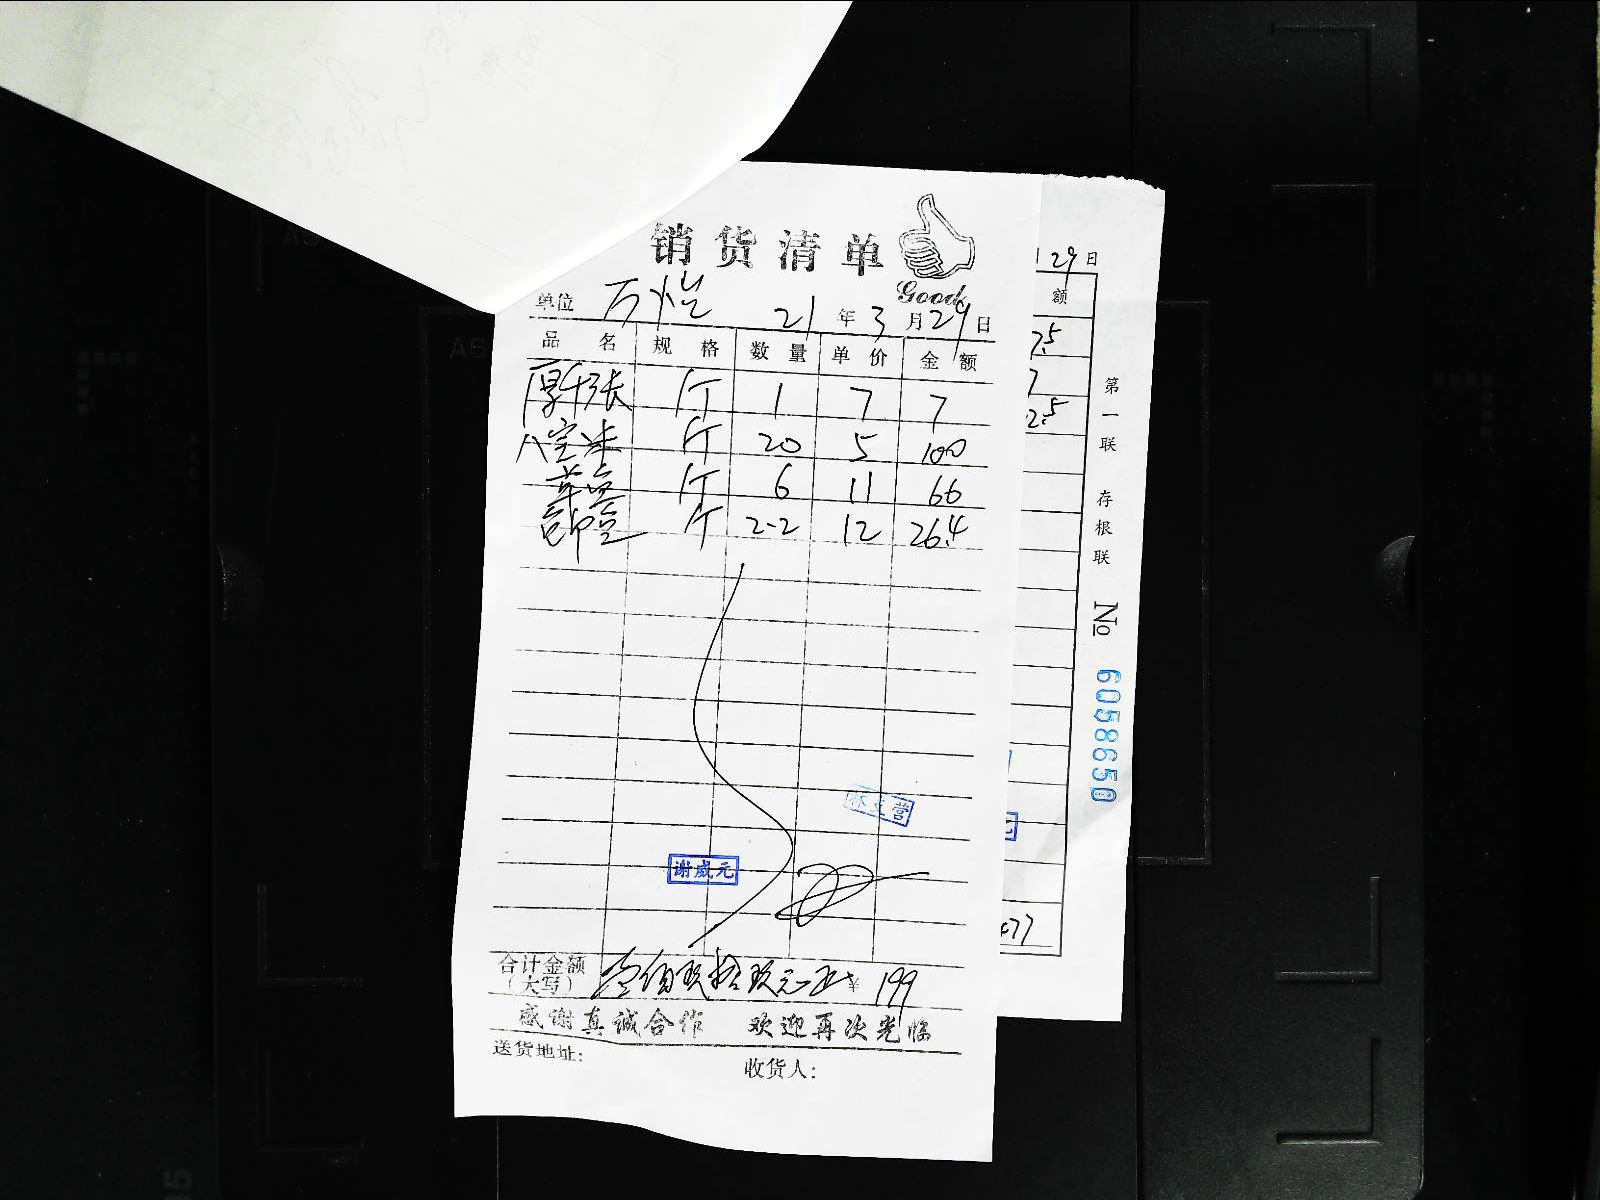 销货清单
Good
单位 万 21年3月29日
品名 规格 数量 单价 金额
厚千张 斤 1 7 7
八宝冰 斤 20 5 100
斤 6 11 66
斤 2.2 12 26.4
谢威元
合计金额(大写) 壹佰玖拾玖元正 ¥ 199
感谢真诚合作 欢迎再次光临
送货地址:
收货人:
29日
额
7.5
7
2.5
77
第一联 存根联 No 6058650
A5